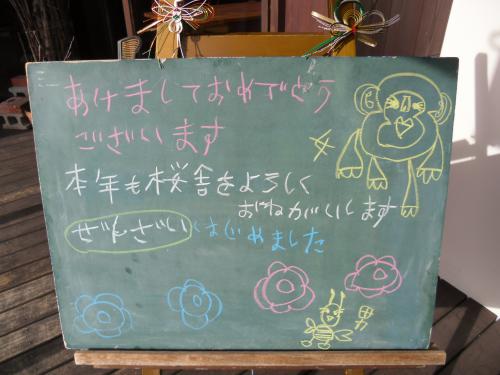 あけましておめでとう
ございます
本年も桜舎をよろしく
おねがいします
ぜんざい はじめました
男